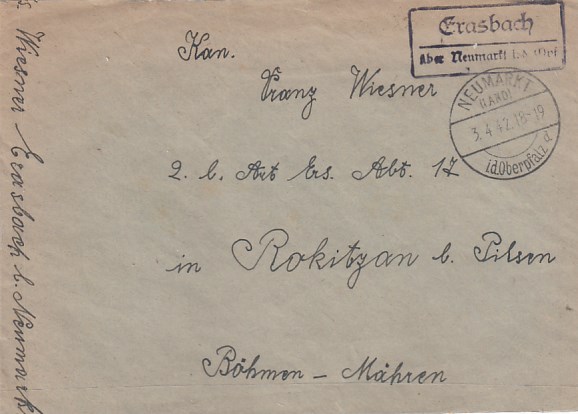 Erasbach
über Neumarkt i. d. Opf
NEUMARKT
(LAND)
3.4.42.18-19
i.d.Oberpfalz d
Kan.
Franz Wiesner
2. b. Art Ers. Abt. 17
in Rokitzan b. Pilsen
Böhmen – Mähren
Wiesner Erasbach b. Neumark